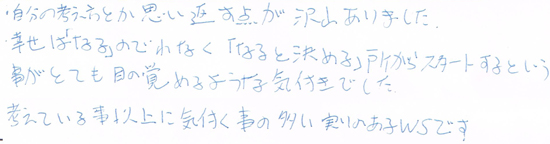 ・自分の考え方とか思い返す点が沢山ありました。
・幸せは「なる」のでわなく「なると決める」所からスタートするという
事がとても目の覚めるような気付きでした
考えている事以上に気付く事の多い実りのあるWSです